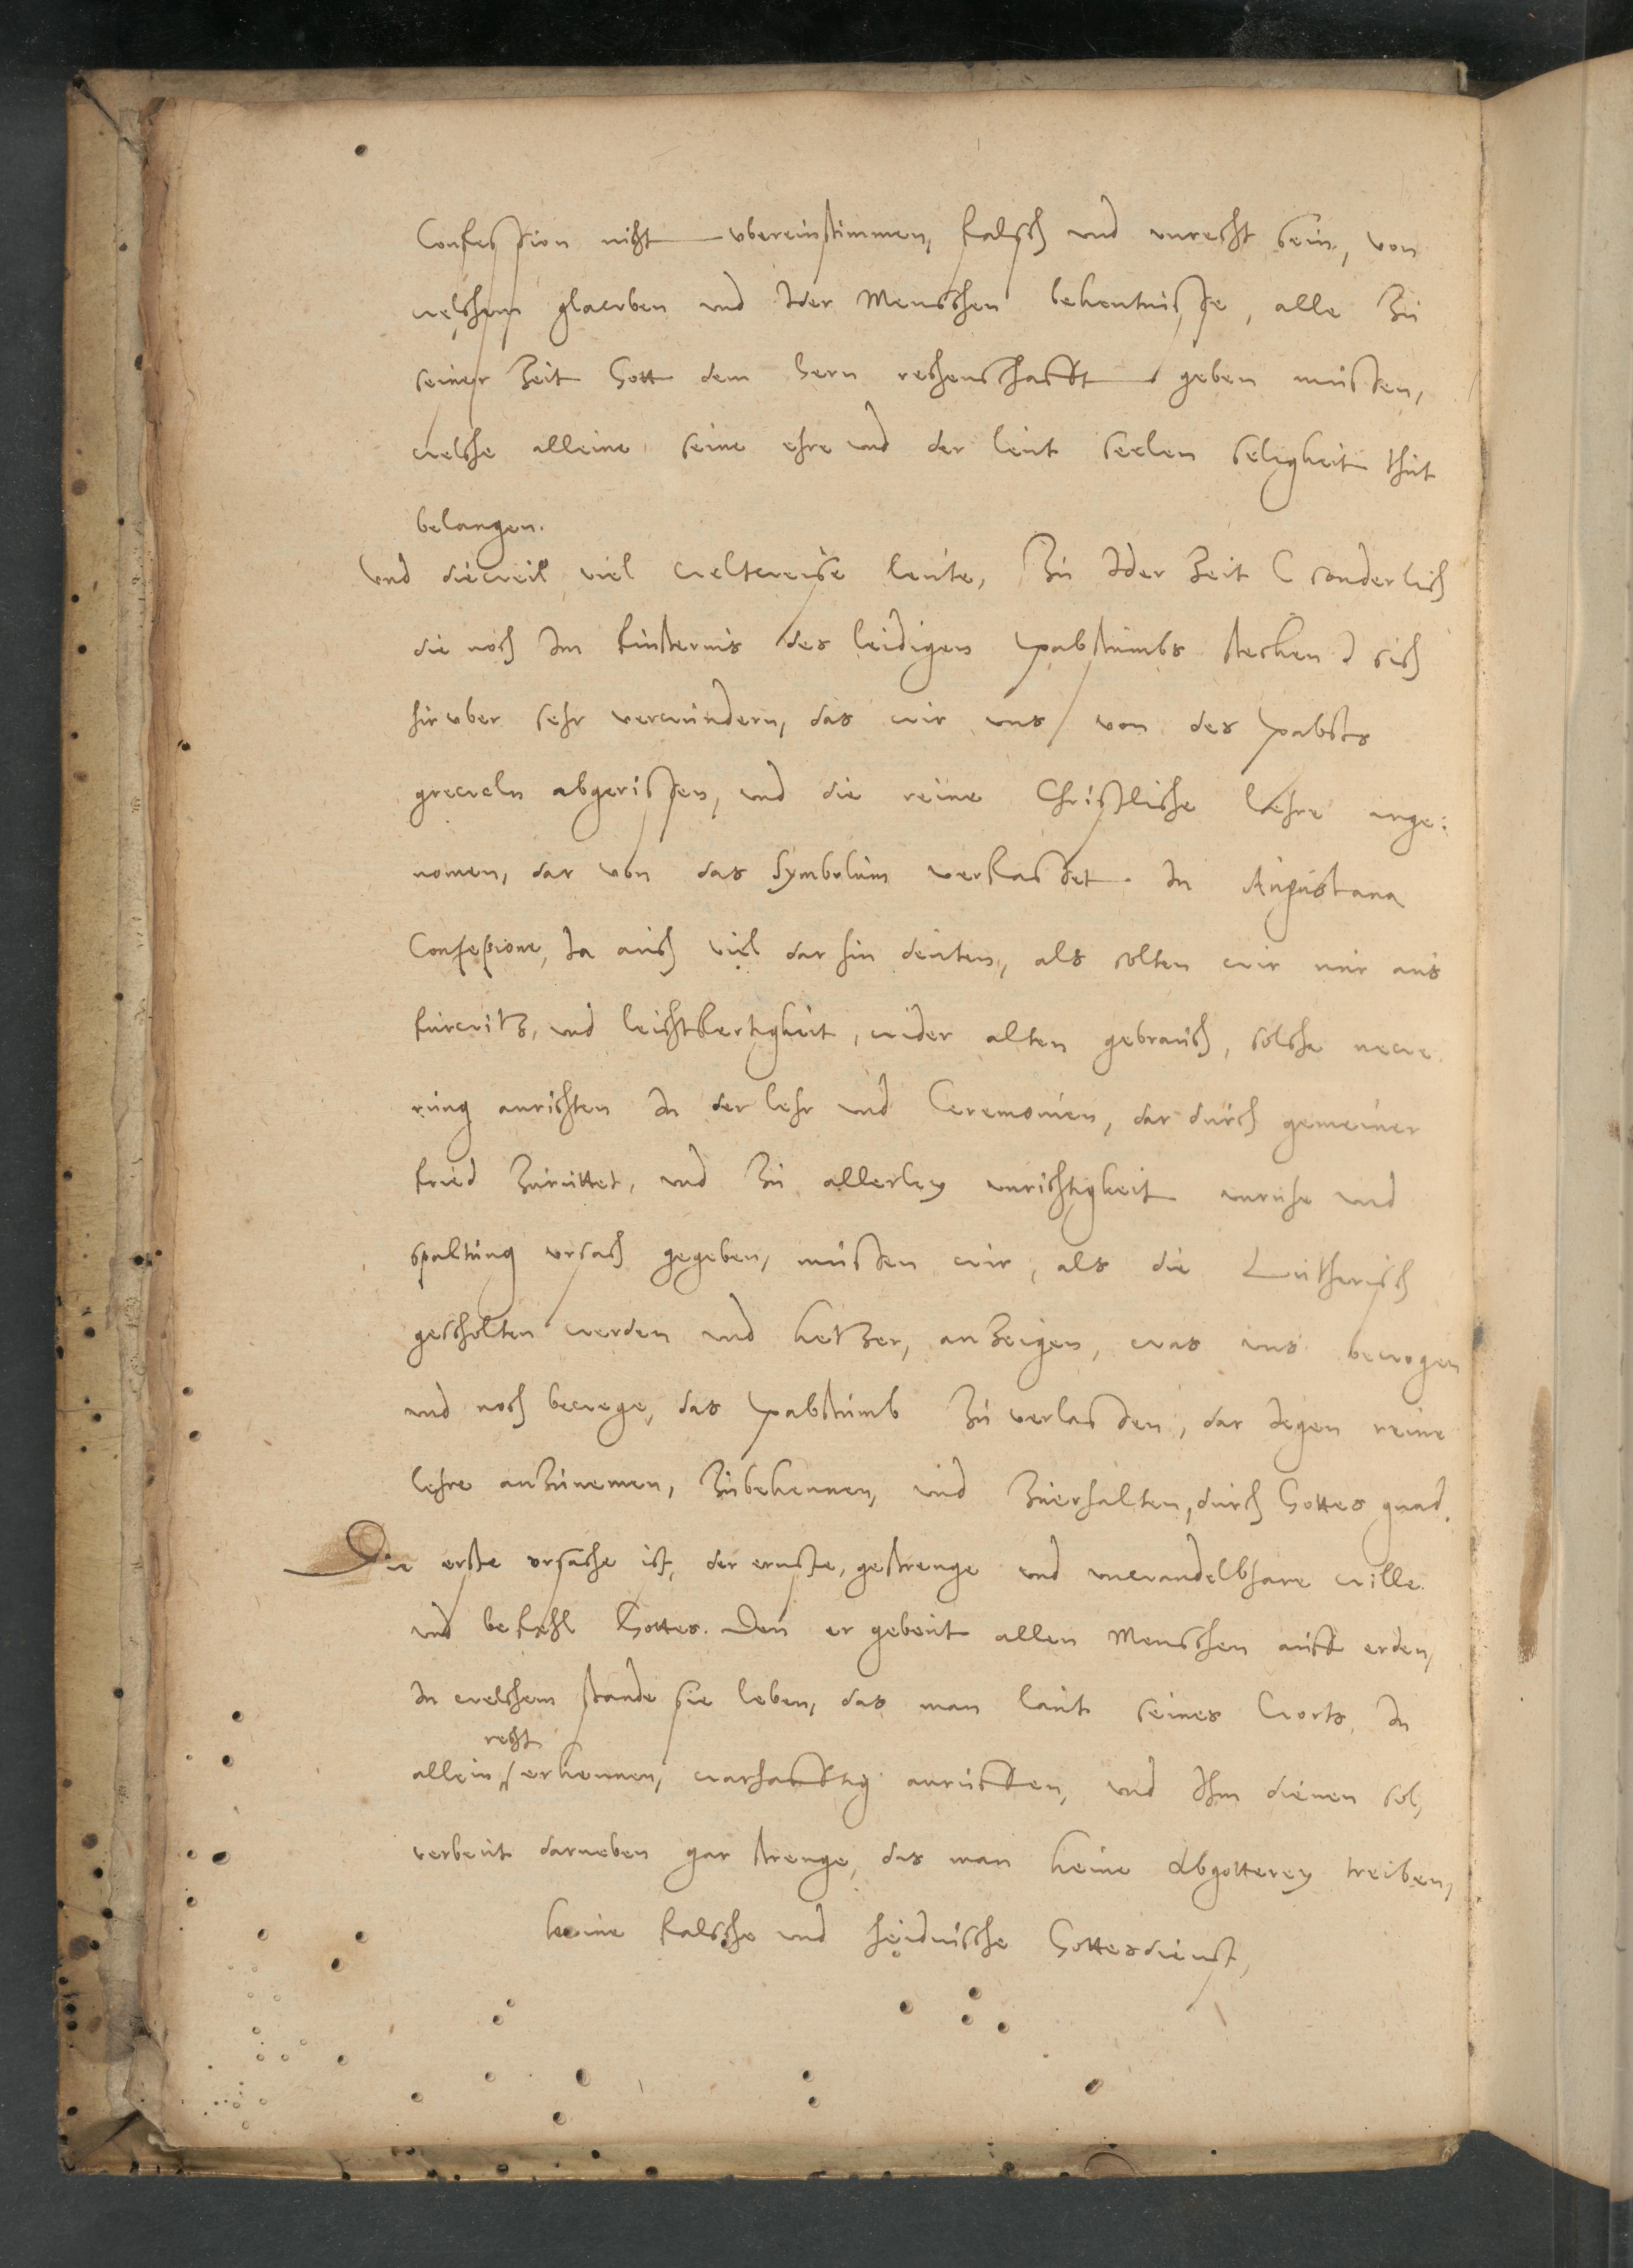 Confession nicht ubereinstimmen, falsch und unrecht sein, von
welchem glawben und Ider Menschen bekentnisse, alle Zu
seiner Zeit Gott dem Hern rechenschafft geben mussen,
welche alleine seine ehre und der leut seelen seligkeit thut
belangen.
Und dieweil viel weltweise leute, Zu Ider Zeit (sonderlich
die noch Im finsternis des leidigen pabstumbs stecken) sich
hiruber sehr verwundern, das wir uns von des pabsts
greweln abgerissen, und die reine Christliche Lehre ange:
nomen, dar von das Symbolum verfasset In Augustana
Confessione, Ja auch viel dar hin deuten, als solten wir nur aus
furwitz, und leichtfertigkeit, wider alten gebrauch, solche newe
rung anrichten In der lehr und Ceremonien, dar durch gemeiner
fried Zuruttet, und Zu allerley unrichtigkeit unruhe und
spaltung ursach gegeben, mussen wir, als die Lutherisch
gescholten werden und ketzer, anzeigen, was uns bewogen
und noch bewege, das pabstumb Zu verlassen, dar Iegen reine
lehre anzunemen, Zubekennen, und Zuerhalten, durch Gottes gnad.
Die erste ursache ist, der ernste, gestrenge und unwandelbhare wille
und befehl Gottes. Den er gebeut allen Menschen auff erden,
In welchem stande sie leben, das man laut seines Worts, In
recht
allein erkennen, warhafftig anruffen, und Ihm dienen sol,
verbeut darneben gar strenge, das man keine Abgotterey treiben,
keine falsche und heidnische Gottesdienst,